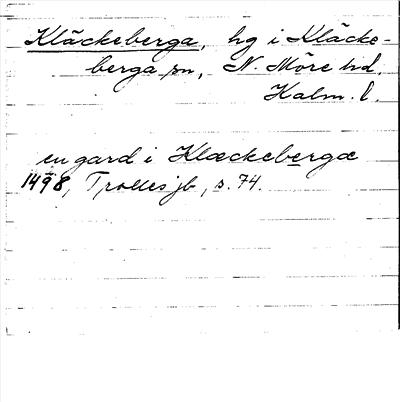 Kläckeberga, hg i Kläcke-
berga sn, N. Möre hd.
Kalm. l.
en gard i Klæckebergæ
1498, Trolles jb, s. 74.